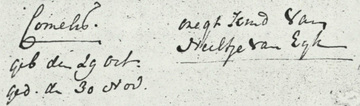 Cornelis.
geb den 29 oct.
ged. den 30 Nov.
onegt kind van
Neeltje van Eyk